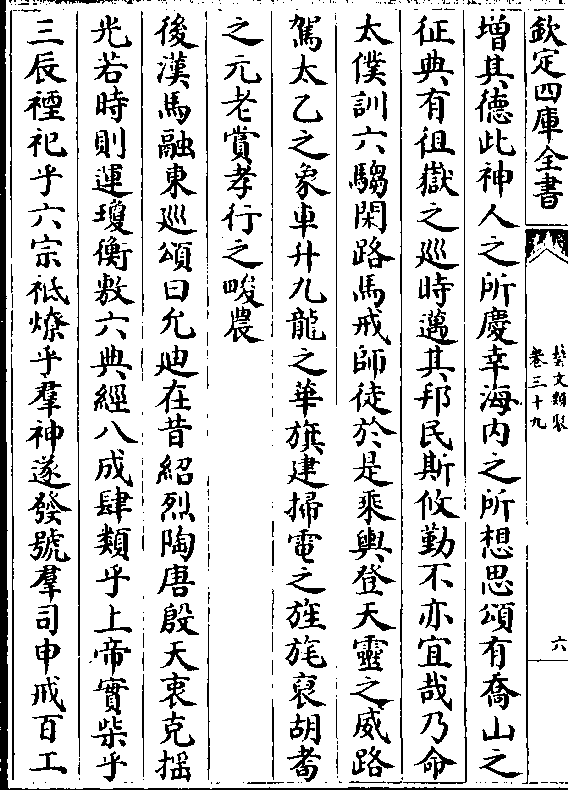 欽定四庫全書
藝文類聚
卷三十九
六
增其徳此神人之所慶幸海内之所想思頌有喬山之
征典有徂嶽之廵時邁其邦民斯攸勤不亦宜哉乃命
太僕訓六騶閑路馬戒師徒於是乘輿登天靈之威路
駕太乙之象車升九龍之華旗建掃電之旌旄裒胡耉
之元老賞孝行之畯農
後漢馬融東廵頌曰允廸在昔紹烈陶唐殷天衷克揺
光若時則運瓊衡敷六典經八成肆類乎上帝實柴乎
三辰禋祀乎六宗祗燎乎羣神遂發號羣司申戒百工